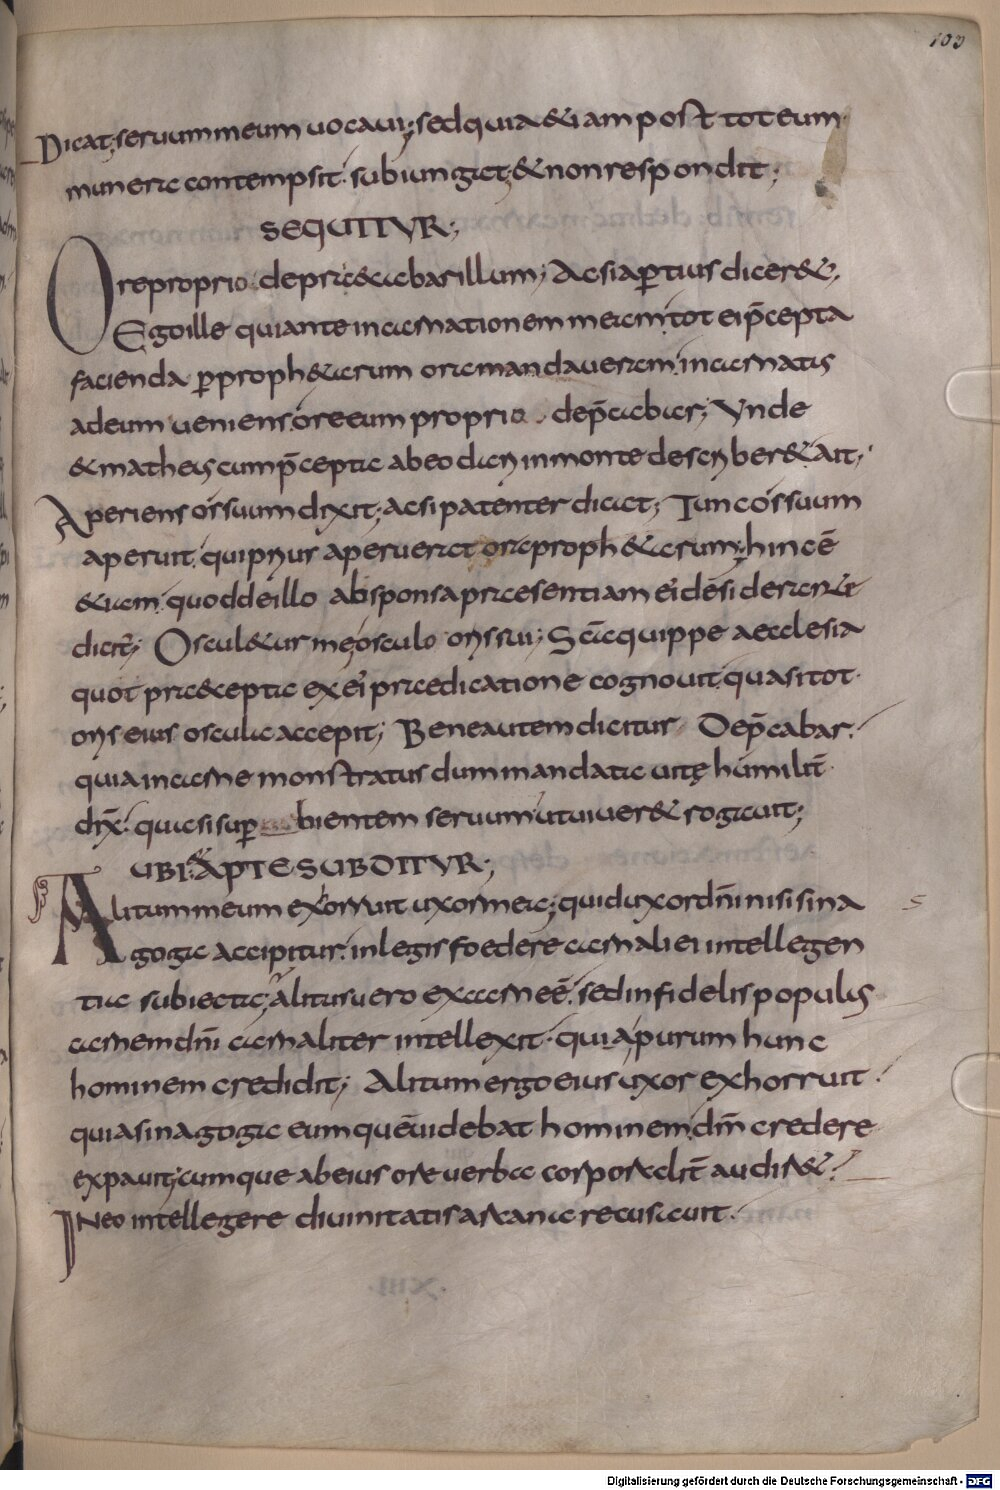 103
Dicat; seruum meum uocaui; sed quia & iam post tot eum
munera contempsit. subiungat; & non respondit;
SEQUITUR;
Ore proprio depraecabar illum; Ac si apertius dicer&;
Ego ille qui ante incarnationem meam tot ei p̄cepta
facienda p proph&arum ora mandaueram. incarnatus
ad eum ueniens. ore eum proprio dep̄cabar; Vnde
& matheus cum p̄cepta ab eo dari in monte describer& ait;
Aperiens os suum dixit; ac si patenter dicat; Tunc os suum
aperuit. qui prius aperuerat ora proph&arum; hinc ē
&iam. quod de illo ab sponsa praesentiam ei' desiderante
dicit̄; Oscul&ur me osculo oris sui; Scā quippe aecclesia
quot praecepta ex ei' praedicatione cognouit. quasi tot
oris eius oscula accepit; Bene autem dicitur Dep̄cabar.
quia in carne monstratus dum mandata uitę humilit̄
dix̄. quasi superbientem seruum ut uiuer& rogauit;
UBI & APTE SUBDITUR;
Alitum meum exorruit uxor mea; quid uxor dn̄i nisi sina
goga accipitur. in legis foedere carnali ei intellegen
tia subiecta; alitus uero ex carne ē. sed infidelis populus
carnem dn̄i carnaliter intellexit. quia purum hunc
hominem credidit; Alitum ergo eius uxor exhorruit.
quia sinagoga eum quē uidebat hominem. dm̄ credere
expauit; cumque ab eius ore uerba corporalit̄ audir&.
In eo intellegere diuinitatis arcana recusauit.
Digitalisierung gefördert durch die Deutsche Forschungsgemeinschaft - DFG